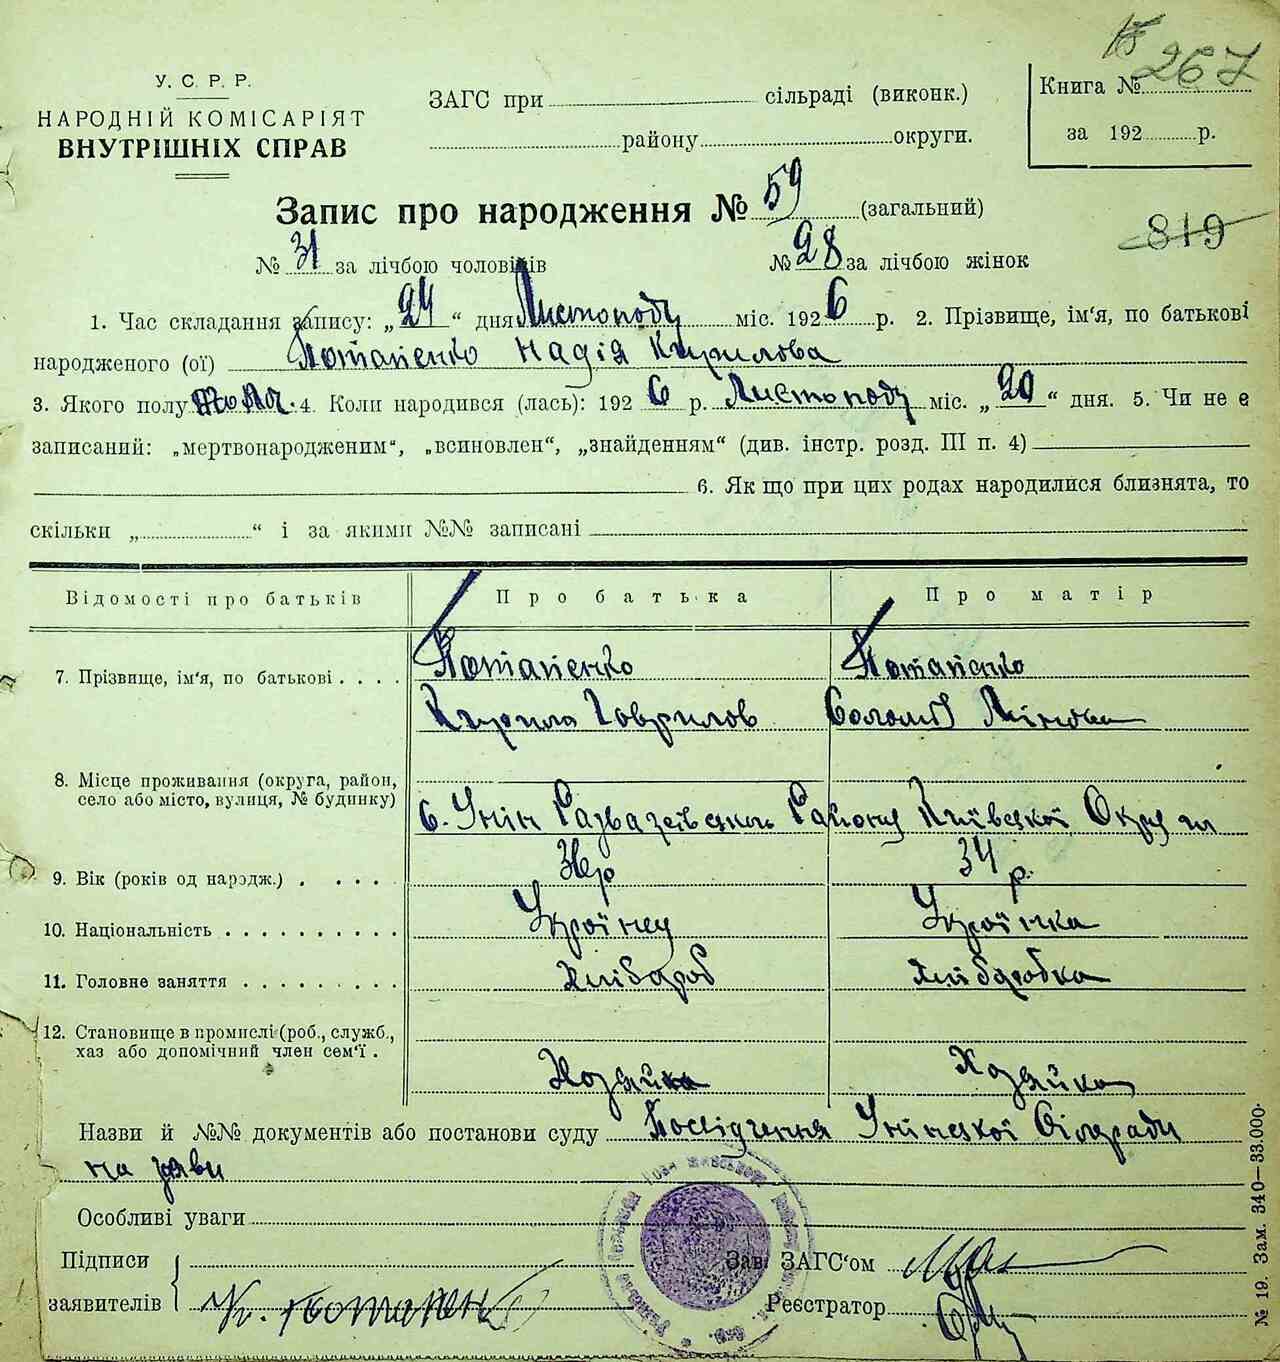 267
У. С. Р. Р.
НАРОДНІЙ КОМІСАРІЯТ
ВНУТРІШНІХ СПРАВ
ЗАГС при сільраді (виконк.)
району округи.
Книга №
за 192 р.
Запис про народження № 59 (загальний)
819
№ 31 за лічбою чоловіків № 28 за лічбою жінок
1. Час складання запису: „24“ дня Листопаду міс. 1926 р. 2. Прізвище, ім'я, по батькові
народженого (ої) Потапенко Надія Кирилова
3. Якого полу 4. Коли народився (лась): 1926 р. Листопаду міс. „20“ дня. 5. Чи не є
записаний: „мертвонародженим“, „всиновлен“, „знайденням“ (див. інстр. розд. III п. 4)
6. Як що при цих родах народилися близнята, то
скільки „ “ і за якими №№ записані
Відомості про батьків Про батька Про матір
7. Прізвище, ім'я, по батькові . . . . Потапенко Потапенко
Кирило Гаврилов
8. Місце проживання (округа, район,
село або місто, вулиця, № будинку)
с. Унін Розважівського Району Київської Округи
9. Вік (років од народж.) . . . . . 36 р 34 р.
10. Національність . . . . . . . . . . Українец Українка
11. Головне заняття . . . . . . . . . Хлібороб Хліборобка
12. Становище в промислі (роб., служб.,
хаз або допомічний член сем'ї .
Хозяйка
Назви й №№ документів або постанови суду Посвідчення Унінської Сільради
на заяви
Особливі уваги
Підписи
заявителів Потапенко
Зав. ЗАГС'ом
Реєстратор
№ 19. Зам. 340—33.000·